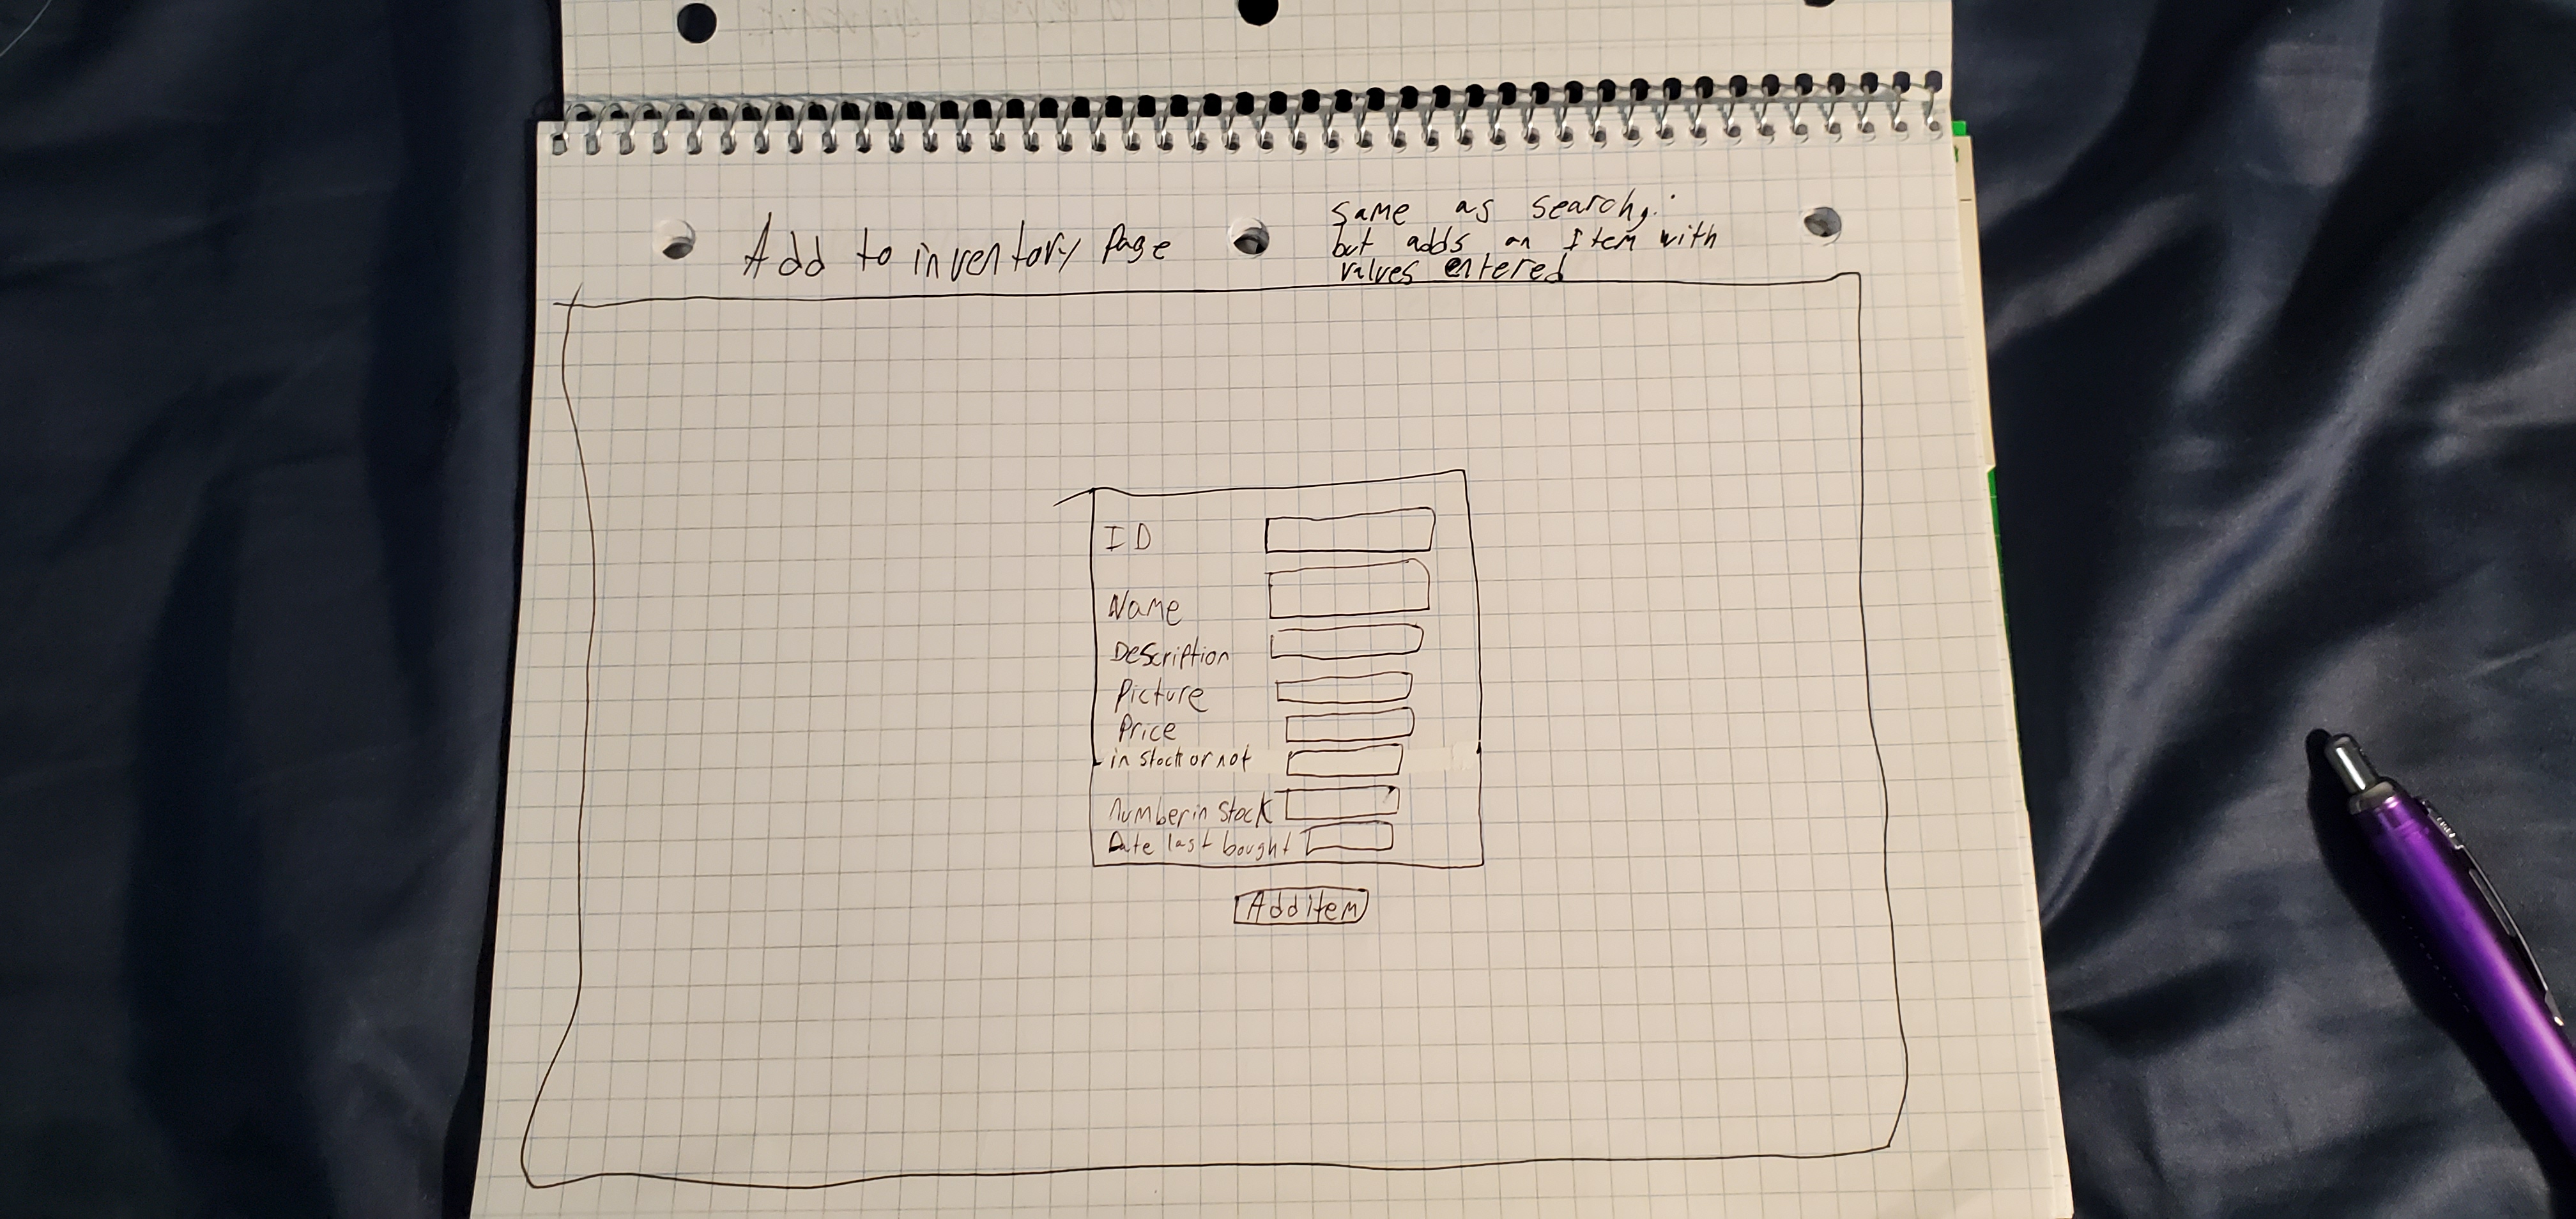 Add to inventory Page
Same as search,
but adds an item with
values entered
ID
Name
Description
Picture
Price
in stock or not
number in stock
Date last bought
Add item